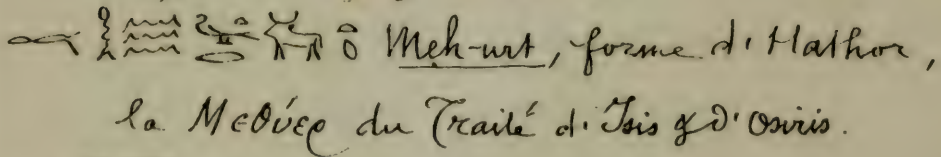 Meh-urt, forme d'Hathor,
la Μεθύερ du Traité d'Isis & d'Osiris.